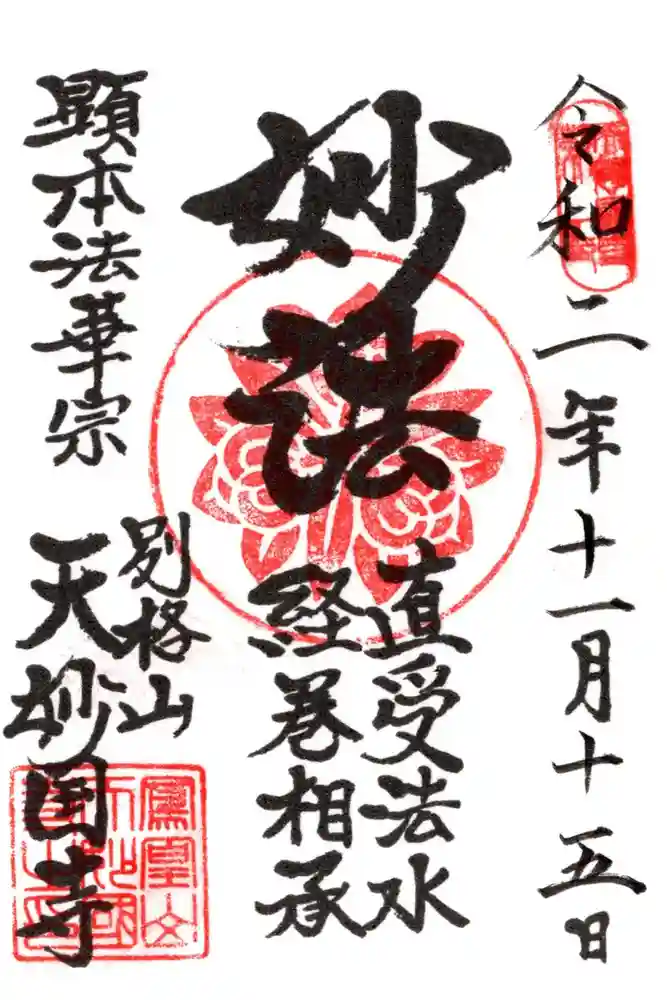 令和二年十一月十五日
妙法
直受法水
経巻相承
顕本法華宗
別格山
天妙国寺
鳳凰山